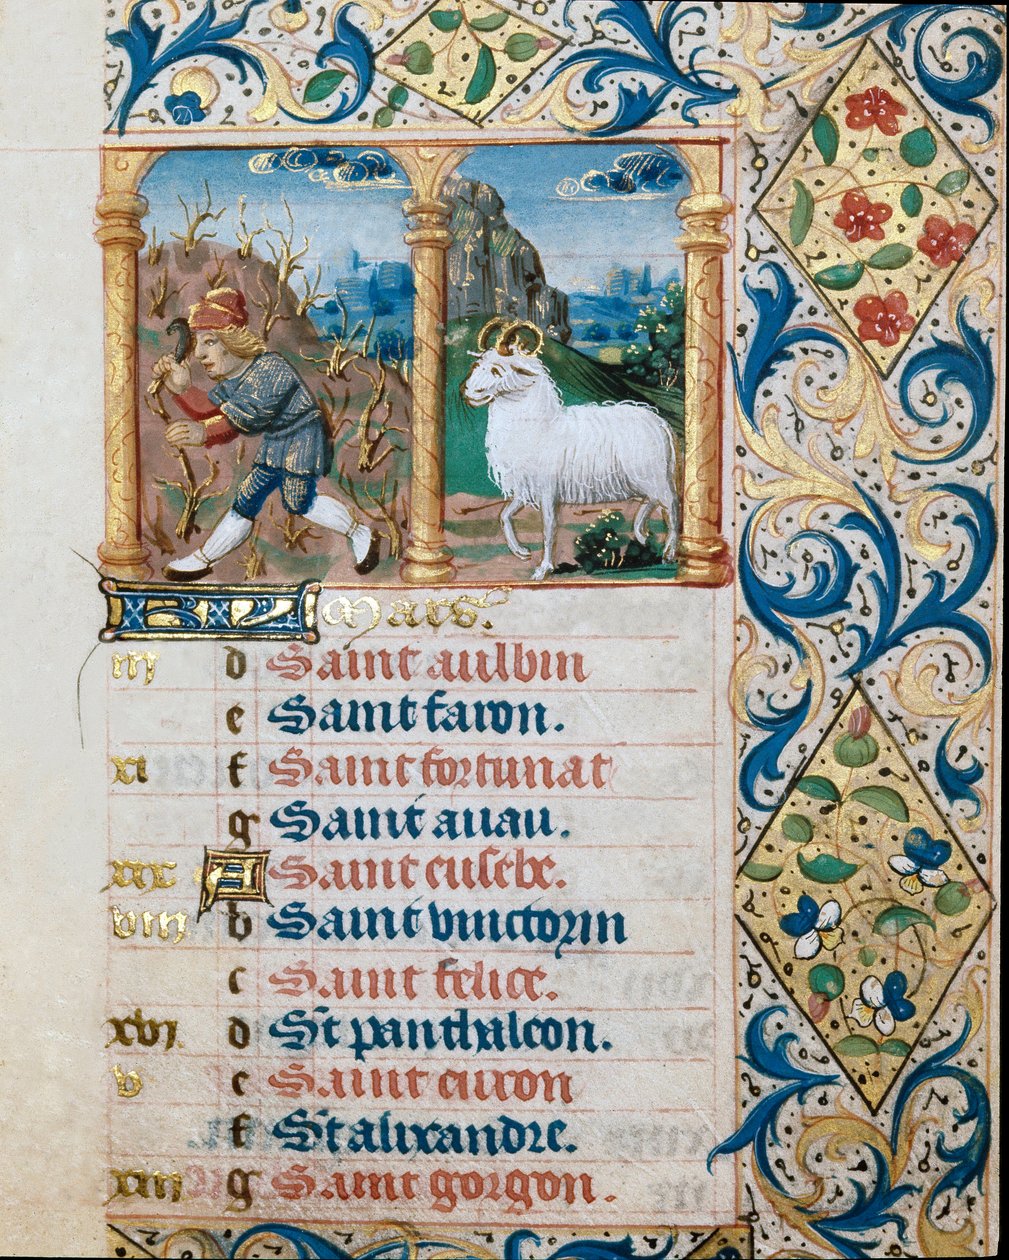 KL Mars.
iij d Saint aulbin
e Saint faron.
xi f Saint fortunat
g Saint auau.
xix A Saint eusebe.
viij b Saint vinctorin
c Saint felice.
xvj d St panthaleon.
v e Saint eiron
f St alixandre.
xiij g Saint gorgon.